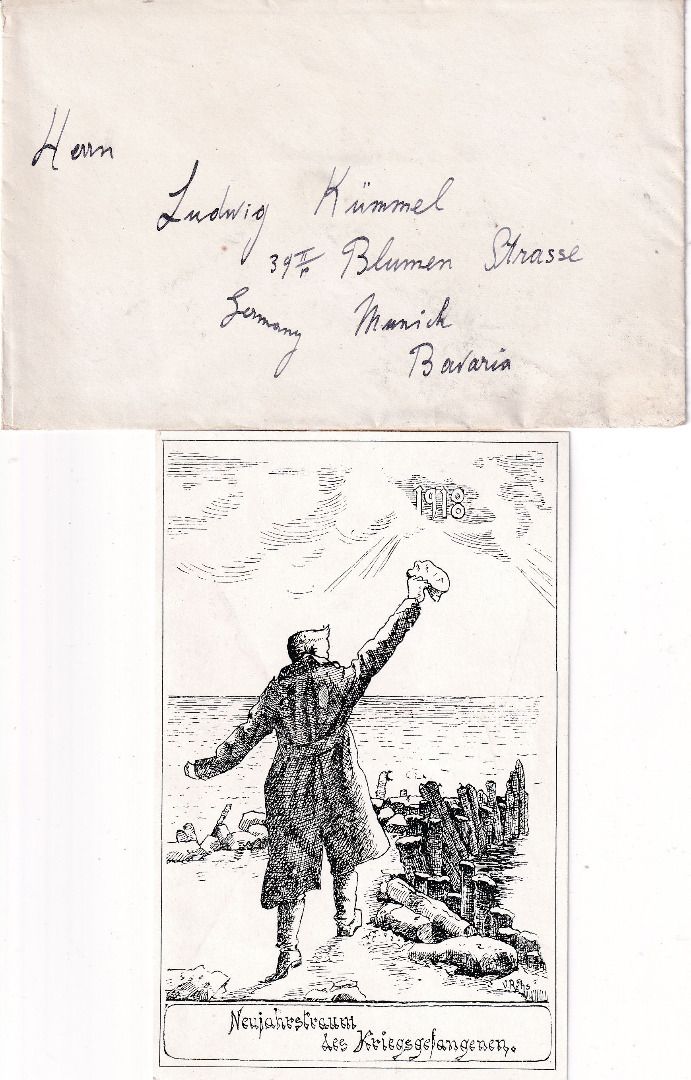 Herrn
Ludwig Kümmel
39 II/r Blumen Strasse
Germany Munich
Bavaria
1918
Neujahrstraum
des Kriegsgefangenen.